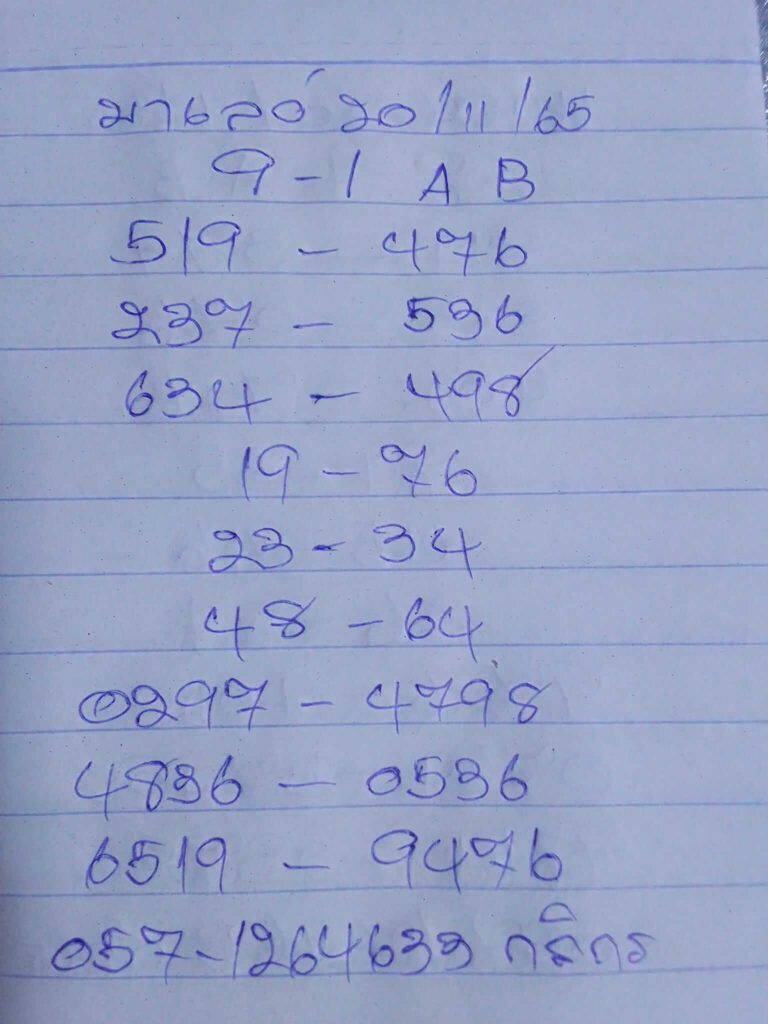 มาเลย์ 20/11/65
9-1 A B
519 - 476
237 - 536
634 - 498
19 - 76
23 - 34
48 - 64
0297 - 4798
4836 - 0536
6519 - 9476
057-1264633 กสิกร